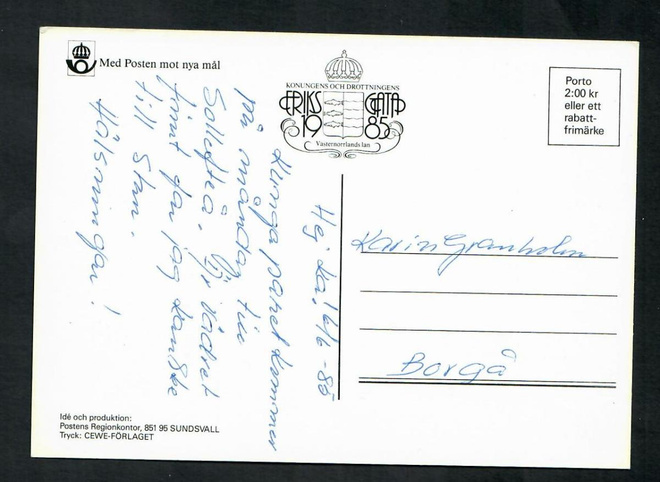 Med Posten mot nya mål
KONUNGENS OCH DROTTNINGENS
ERIKSGATA
1985
Västernorrlands län
Porto
2:00 kr
eller ett
rabatt-
frimärke
Hej Ka! 6/6 -85
Kungaparet kommer
på måndag till
Sollefteå. Är vädret
fint far jag kanske
till stan.
Hälsningar!
Karin Granholm
Borgå
Idé och produktion:
Postens Regionkontor, 851 95 SUNDSVALL
Tryck: CEWE-FÖRLAGET